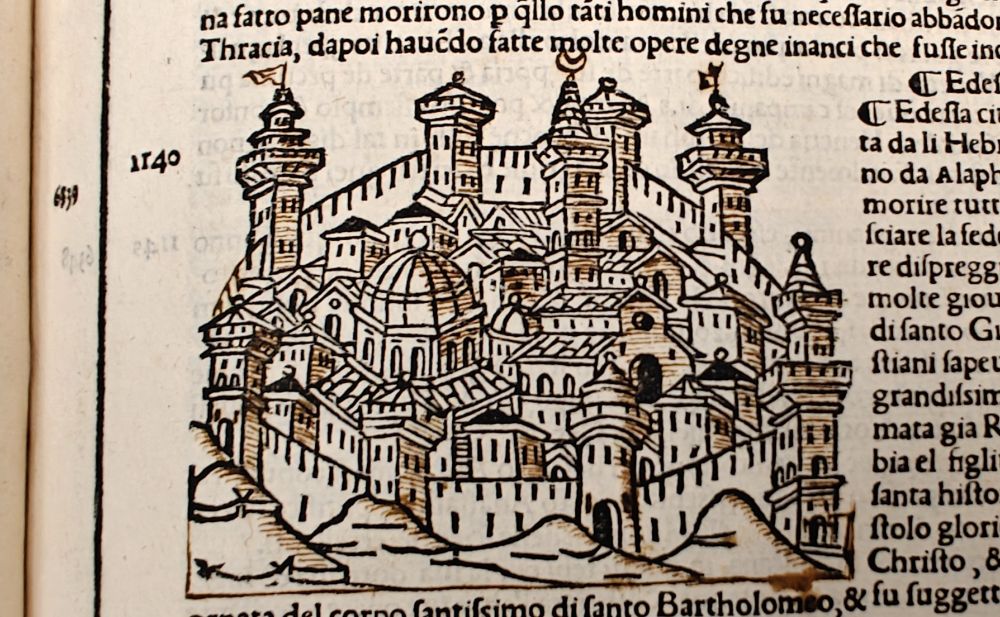 na fatto pane morirono ꝑ q̃llo tãti homini che fu necessario abbãdor
Thracia, dapoi hauẽdo fatte molte opere degne inanci che fusse ind
¶ Edes
¶ Edessa cit
1140
ta da li Hebr
no da Alaph
6939
morire tutt
sciare la fede
re dispreggi
molte giou
di santo Gi
stiani sapeu
grandissim
mata gia R
bia el figli
santa histo
stolo glori
Christo, &
del corpo santissimo di santo Bartholomeo, & fu suggett